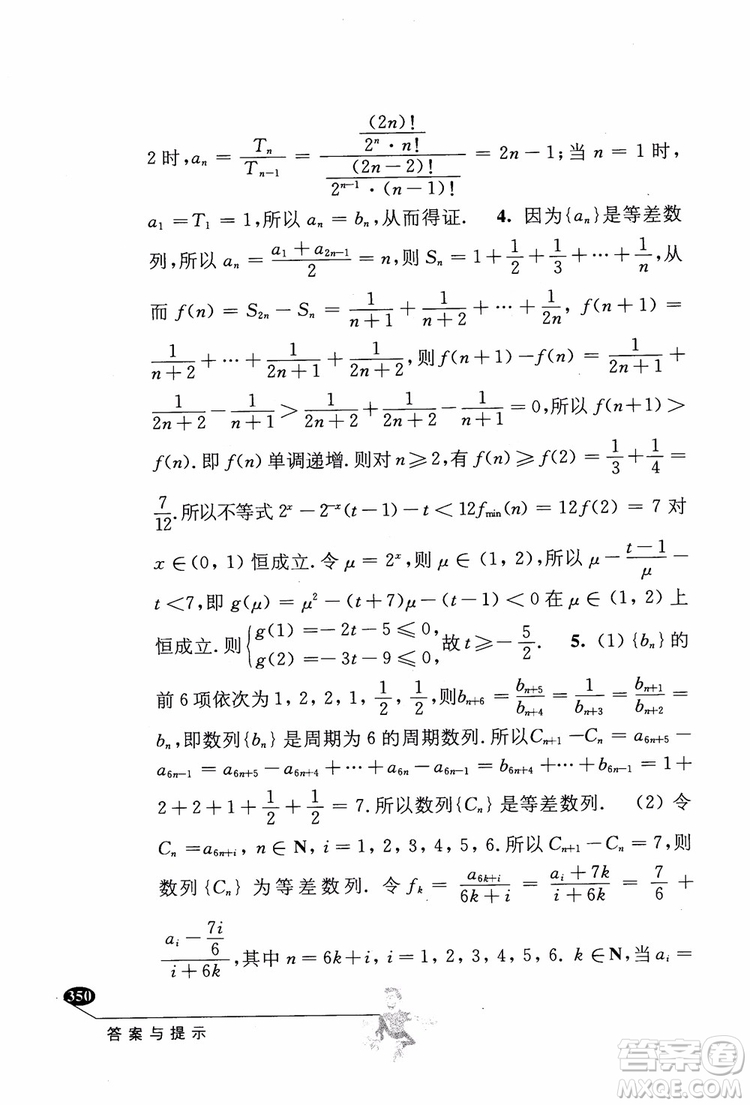 2时, aₙ = Tₙ/Tₙ₋₁ = ((2n)!/(2ⁿ · n!))/((2n−2)!/(2ⁿ⁻¹ · (n−1)!)) = 2n−1; 当 n = 1 时,
a₁ = T₁ = 1, 所以 aₙ = bₙ, 从而得证. 4. 因为{aₙ}是等差数
列, 所以 aₙ = (a₁ + a₂ₙ₋₁)/2 = n, 则 Sₙ = 1 + 1/2 + 1/3 + ⋯ + 1/n, 从
而 f(n) = S₂ₙ − Sₙ = 1/(n+1) + 1/(n+2) + ⋯ + 1/(2n), f(n+1) =
1/(n+2) + ⋯ + 1/(2n+1) + 1/(2n+2), 则 f(n+1) − f(n) = 1/(2n+1) +
1/(2n+2) − 1/(n+1) > 1/(2n+2) + 1/(2n+2) − 1/(n+1) = 0, 所以 f(n+1) >
f(n). 即 f(n) 单调递增. 则对 n ⩾ 2, 有 f(n) ⩾ f(2) = 1/3 + 1/4 =
7/12. 所以不等式 2ˣ − 2⁻ˣ(t−1) − t < 12f_min(n) = 12f(2) = 7 对
x ∈ (0, 1) 恒成立. 令 μ = 2ˣ, 则 μ ∈ (1, 2), 所以 μ − (t−1)/μ −
t < 7, 即 g(μ) = μ² − (t+7)μ − (t−1) < 0 在 μ ∈ (1, 2) 上
恒成立. 则 { g(1) = −2t−5 ⩽ 0, g(2) = −3t−9 ⩽ 0, 故 t ⩾ −5/2. 5. (1) {bₙ} 的
前 6 项依次为 1, 2, 2, 1, 1/2, 1/2, 则 bₙ₊₆ = bₙ₊₅/bₙ₊₄ = 1/bₙ₊₃ = bₙ₊₁/bₙ₊₂ =
bₙ, 即数列{bₙ} 是周期为 6 的周期数列. 所以 Cₙ₊₁ − Cₙ = a₆ₙ₊₅ −
a₆ₙ₋₁ = a₆ₙ₊₅ − a₆ₙ₊₄ + ⋯ + a₆ₙ − a₆ₙ₋₁ = b₆ₙ₊₄ + ⋯ + b₆ₙ₋₁ = 1 +
2 + 2 + 1 + 1/2 + 1/2 = 7. 所以数列{Cₙ} 是等差数列. (2) 令
Cₙ = a₆ₙ₊ᵢ, n ∈ N, i = 1, 2, 3, 4, 5, 6. 所以 Cₙ₊₁ − Cₙ = 7, 则
数列{Cₙ} 为等差数列. 令 fₖ = a₆ₖ₊ᵢ/(6k+i) = (aᵢ+7k)/(i+6k) = 7/6 +
(aᵢ − 7i/6)/(i+6k), 其中 n = 6k+i, i = 1, 2, 3, 4, 5, 6. k ∈ N, 当 aᵢ =
350
答案与提示
答案圈
MXQE.COM